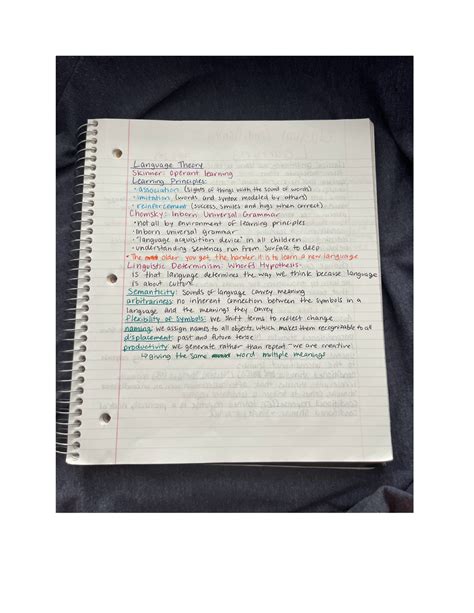 Language Theory
Skinner: operant learning
Learning Principles:
• association (sights of things with the sound of words)
• imitation (words and syntax modeled by others)
• reinforcement (success, smiles and hugs when correct)
Chomsky: Inborn Universal Grammar
• not all by environment of learning principles
• Inborn universal grammar
• "language acquisition device" in all children
• understanding sentences run from surface to deep
• The older you get, the harder it is to learn a new language
Linguistic Determinism: Whorf's Hypothesis:
is that language determines the way we think because language
is about culture
Semanticity: sounds of language convey meaning
arbitrariness: no inherent connection between the symbols in a
language, and the meanings they convey
flexibility of symbols: we shift terms to reflect change
naming: we assign names to all objects, which makes them recognitable to all
displacement: past and future tense
productivity: we generate rather than repeat - we are creative!
↳ giving the same word multiple meanings